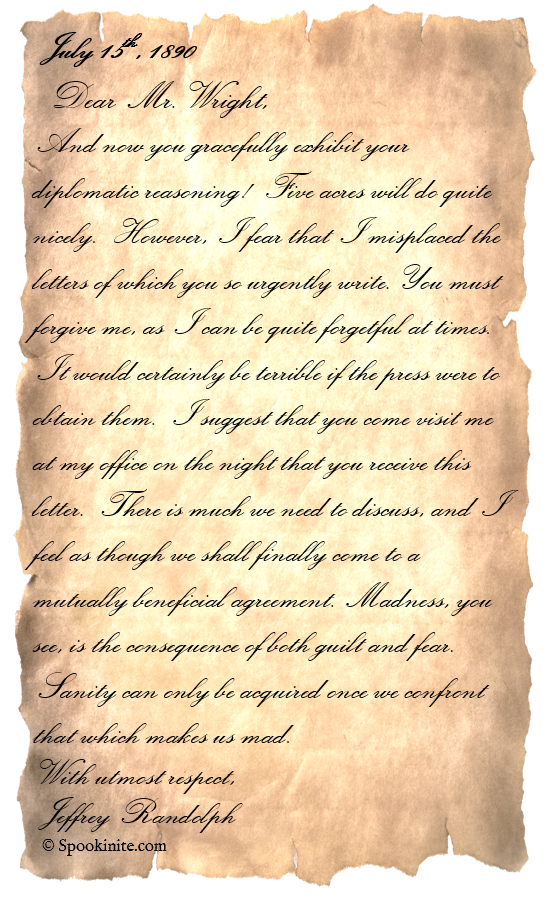 July 15th, 1890
Dear Mr. Wright,
And now you gracefully exhibit your
diplomatic reasoning! Five acres will do quite
nicely. However, I fear that I misplaced the
letters of which you so urgently write. You must
forgive me, as I can be quite forgetful at times.
It would certainly be terrible if the press were to
obtain them. I suggest that you come visit me
at my office on the night that you receive this
letter. There is much we need to discuss, and I
feel as though we shall finally come to a
mutually beneficial agreement. Madness, you
see, is the consequence of both guilt and fear.
Sanity can only be acquired once we confront
that which makes us mad.
With utmost respect,
Jeffrey Randolph
© Spookinite.com